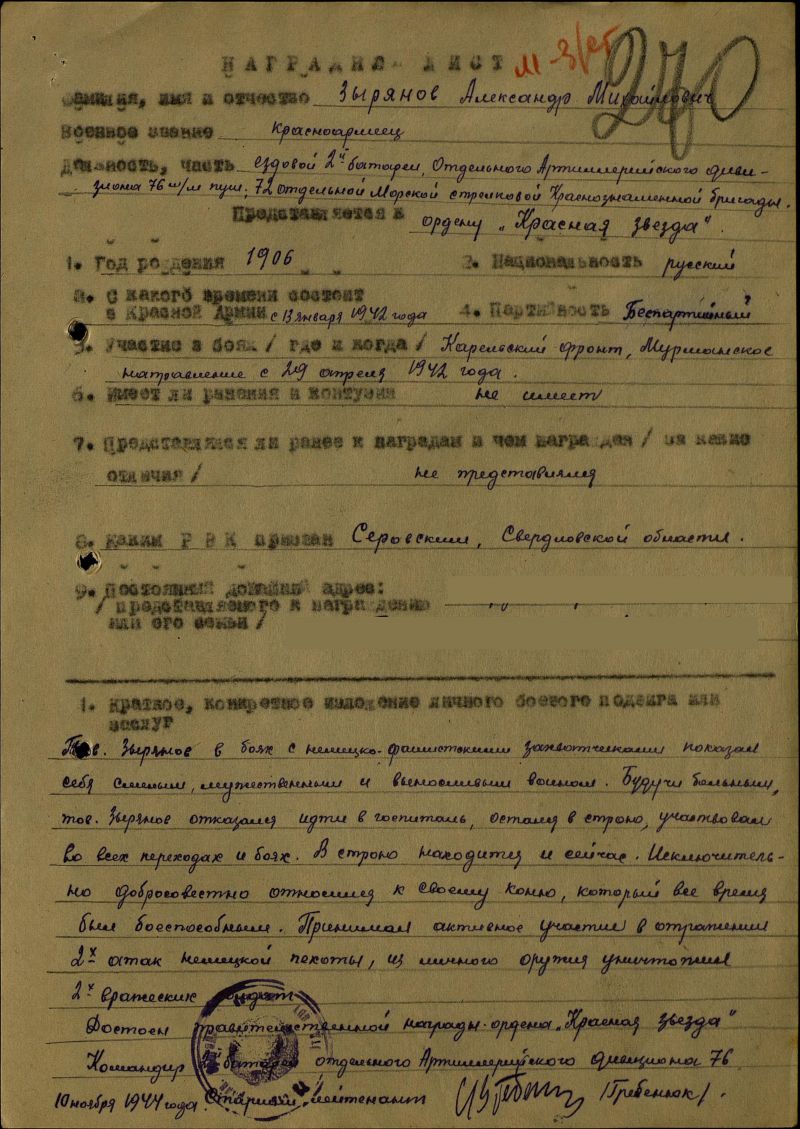 НАГРАДНО ЛИСТ
270
Фамилия, имя и отчество Зырянов Александр Михайлович
Военное звание Красноармеец
Должность, часть ездовой 2й батареи, Отдельного Артиллерийского диви-
зиона 76 м/м пуш, 72 Отдельной Морской стрелковой Краснознаменной бригады.
Представляется к ордену „Красная звезда".
1. Год рождения 1906 2. Национальность русский
3. С какого времени состоит
в Красной Армии с 13 января 1942 года 4. Партийность Беспартийный
5. Участие в боях / где и когда / Карельский фронт, Мурманское
направление с 29 апреля 1942 года.
6. Имеет ли ранения и контузии не имеет
7. Представлялся ли ранее к наградам и чем награжден / за какие
отличия / не представлялся
8. Каким Р В К призван Серовским, Свердловской области.
9. Постоянный домашний адрес:
/ представляемого к награждению
или его семьи /
1. Краткое, конкретное изложение личного боевого подвига или
заслуг
Тов. Зырянов в боях с немецко-фашистскими захватчиками показал
себя смелым, мужественным и выносливым воином. Будучи больным,
тов. Зырянов отказался идти в госпиталь, остался в строю, участвовал
во всех переходах и боях. В строю находится и сейчас. Исключитель-
но добросовестно относился к своему коню, который все время
был боеспособным. Принимал активное участие в отражении
2х атак немецкой пехоты, из личного оружия уничтожил
2х вражеских солдат.
Достоен правительственной награды-ордена „Красная звезда"
Командир 2й батареи отдельного Артиллерийского дивизиона 76
10 ноября 1944 года. Старший лейтенант /Гребенюк/.